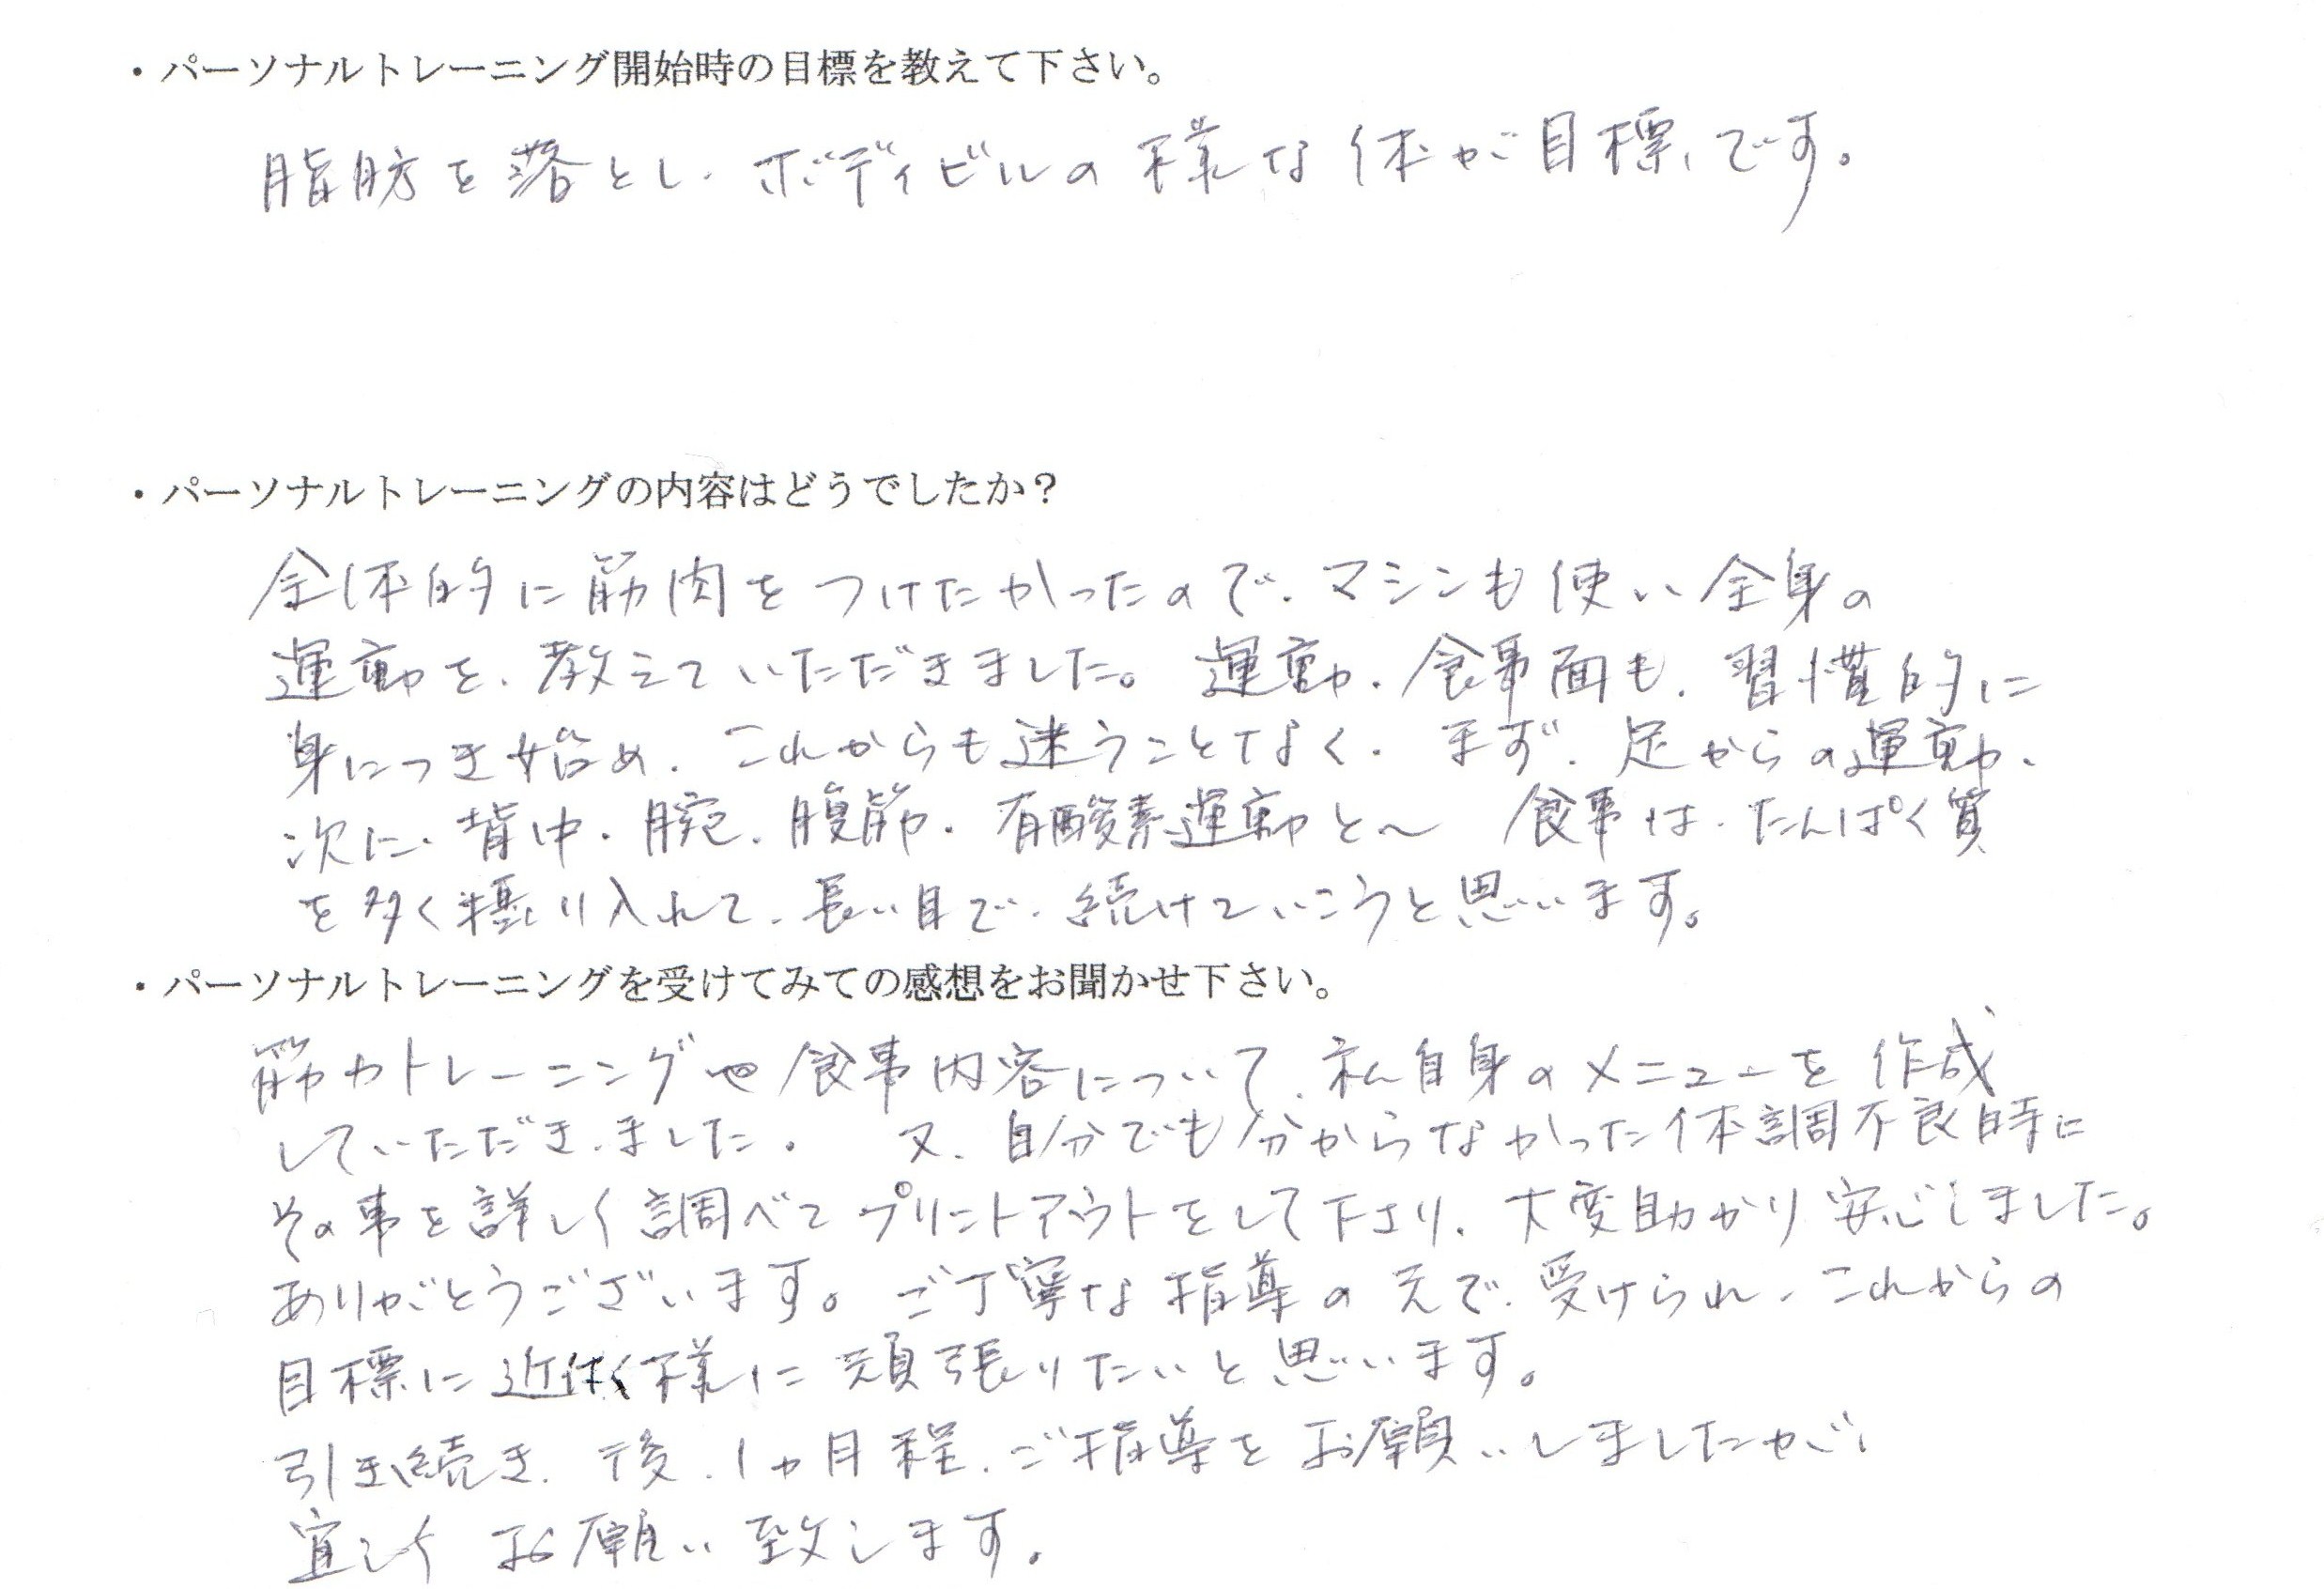 ・パーソナルトレーニング開始時の目標を教えて下さい。
脂肪を落とし、ボディビルの様な体が目標です。
・パーソナルトレーニングの内容はどうでしたか？
全体的に筋肉をつけたかったので、マシンも使い全身の
運動を、教えていただきました。運動、食事面も、習慣的に
身につき始め、これからも迷うことなく、まず、足からの運動、
次に、背中、腕、腹筋、有酸素運動と〜 食事は、たんぱく質
を多く摂り入れて、長い目で、続けていこうと思います。
・パーソナルトレーニングを受けてみての感想をお聞かせ下さい。
筋力トレーニングや食事内容について、私自身のメニューを作成
していただきました。 又、自分でも分からなかった体調不良時に
その事を詳しく調べてプリントアウトをして下さり、大変助かり安心しました。
ありがとうございます。ご丁寧な指導の元で、受けられ、これからの
目標に近付く様に頑張りたいと思います。
引き続き、後、1ヵ月程、ご指導をお願いしましたが、
宜しくお願い致します。